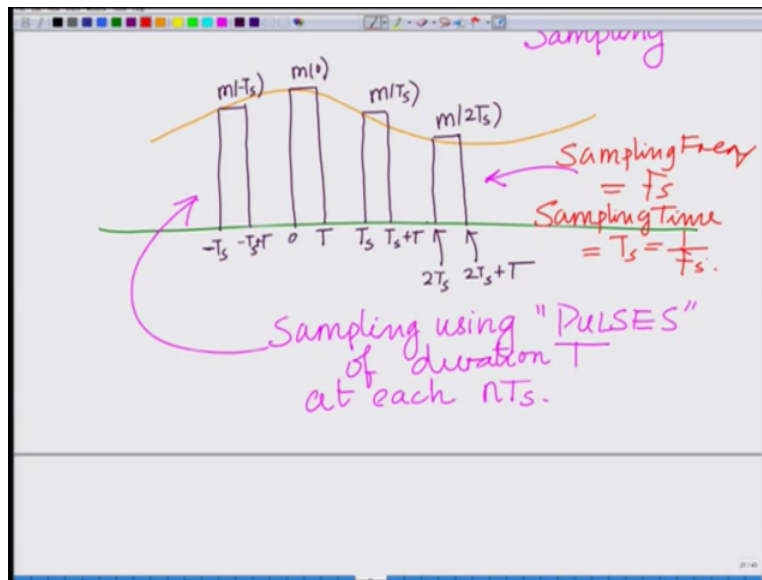 Sampling
m(-Ts) m(0) m(Ts) m(2Ts)
Sampling Freq
= Fs
Sampling Time
= Ts = 1/Fs.
-Ts -Ts+T 0 T Ts Ts+T
2Ts 2Ts+T
Sampling using "PULSES"
of duration T
at each nTs.